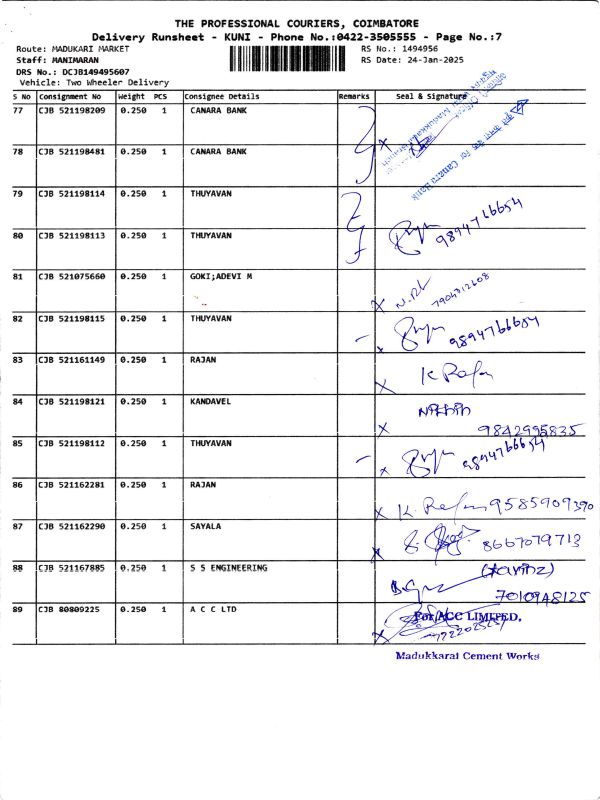 THE PROFESSIONAL COURIERS, COIMBATORE
Delivery Runsheet - KUNI - Phone No.:0422-3505555 - Page No.:7
Route: MADUKARI MARKET RS No.: 1494956
Staff: MANIMARAN RS Date: 24-Jan-2025
DRS No.: DCJB149495607
Vehicle: Two Wheeler Delivery
S No Consignment No Weight PCS Consignee Details Remarks Seal & Signature
77 CJB 521198209 0.250 1 CANARA BANK
78 CJB 521198481 0.250 1 CANARA BANK
for Canara Bank
79 CJB 521198114 0.250 1 THUYAVAN
80 CJB 521198113 0.250 1 THUYAVAN 9894766654
81 CJB 521075660 0.250 1 GOKI;ADEVI M 7904312608
82 CJB 521198115 0.250 1 THUYAVAN 9894766654
83 CJB 521161149 0.250 1 RAJAN K Rajan
84 CJB 521198121 0.250 1 KANDAVEL
9842995835
85 CJB 521198112 0.250 1 THUYAVAN 9894766654
86 CJB 521162281 0.250 1 RAJAN K. Rajan 9585909390
87 CJB 521162290 0.250 1 SAYALA 8667079713
88 CJB 521167885 0.250 1 S S ENGINEERING
7010948125
89 CJB 80809225 0.250 1 A C C LTD For ACC LIMITED,
Madukkarai Cement Works